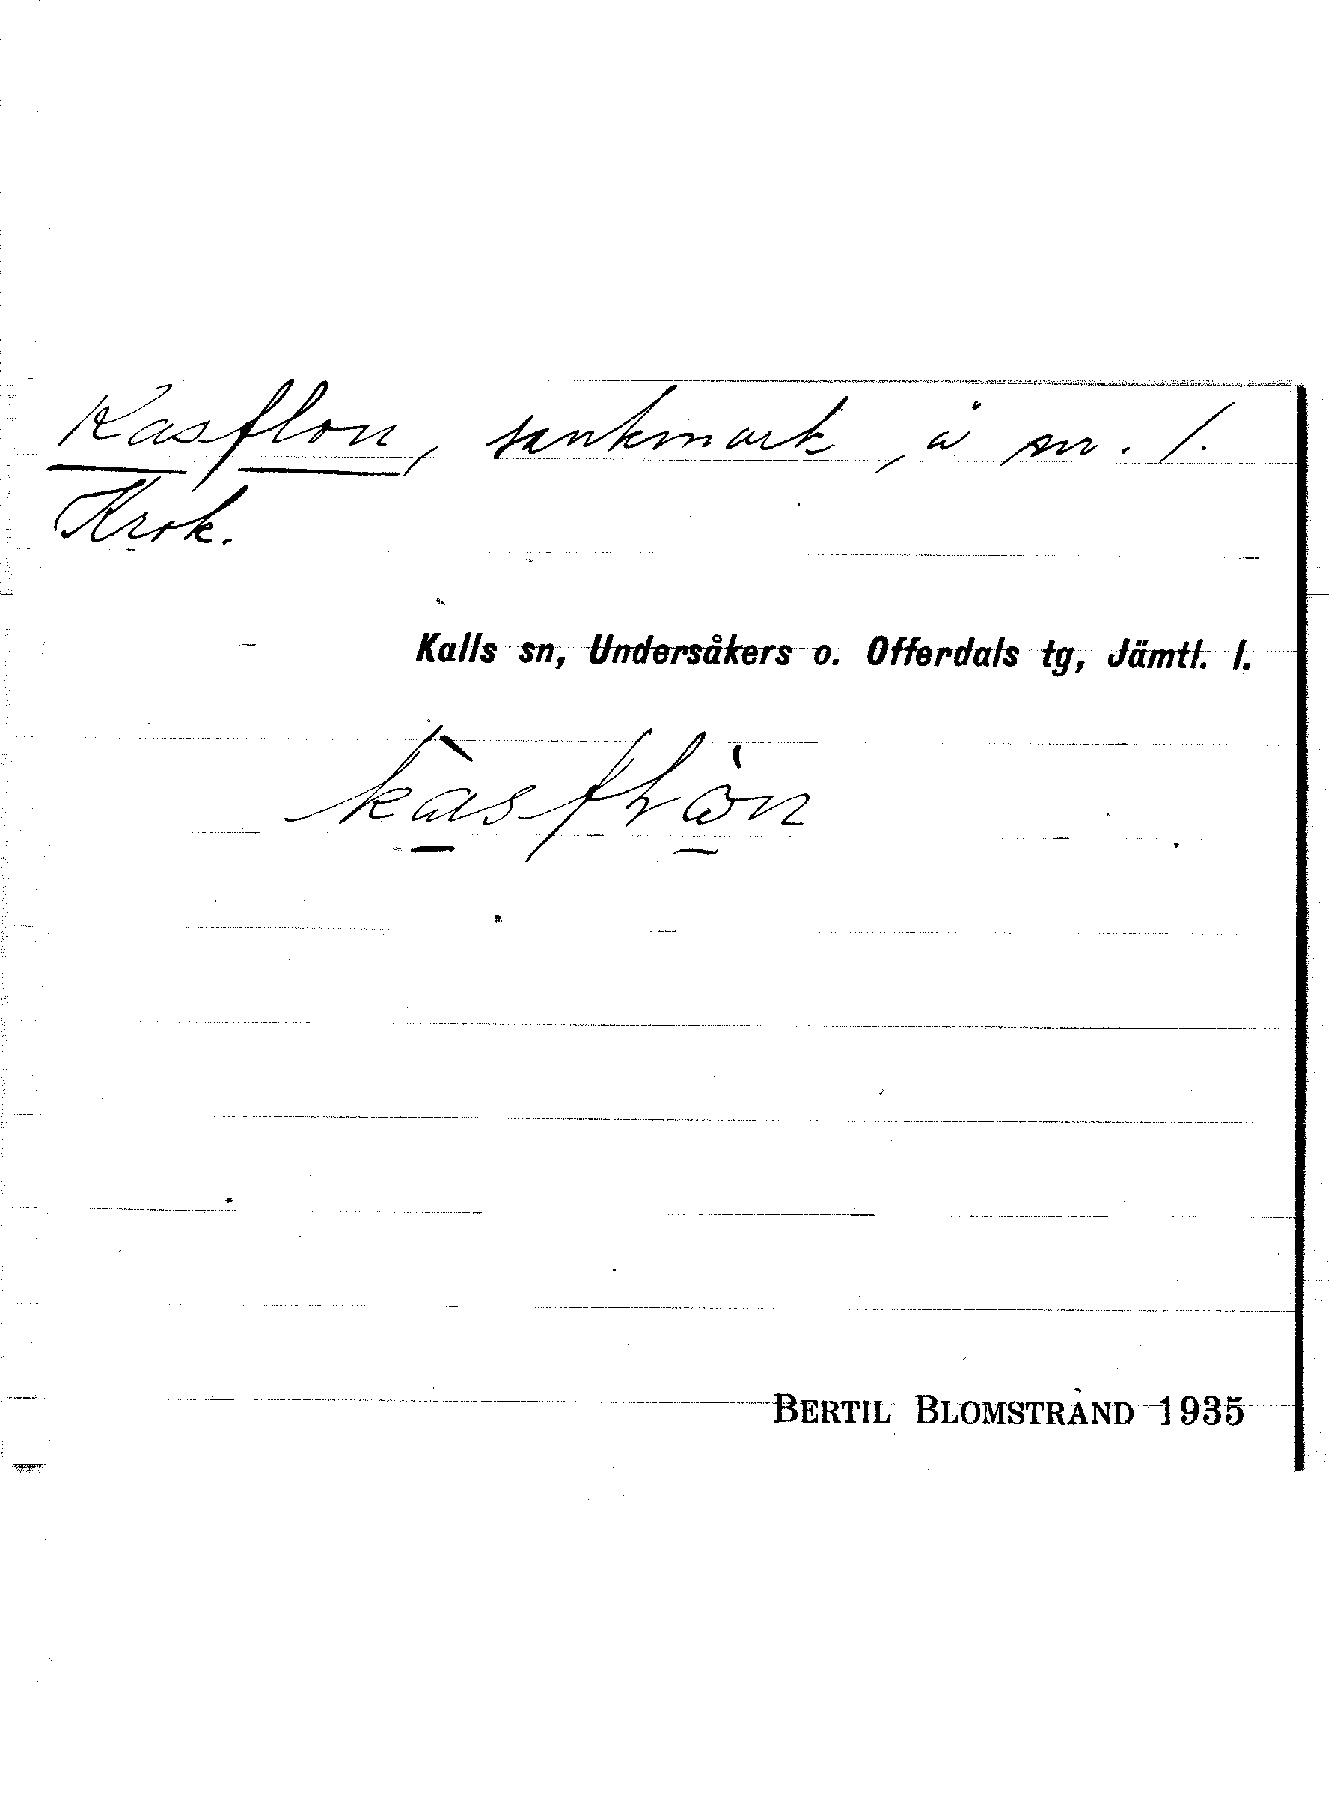 Kasflon, sankmark, å nr. 1.
Krok.
Kalls sn, Undersåkers o. Offerdals tg, Jämtl. l.
BERTIL BLOMSTRAND 1935